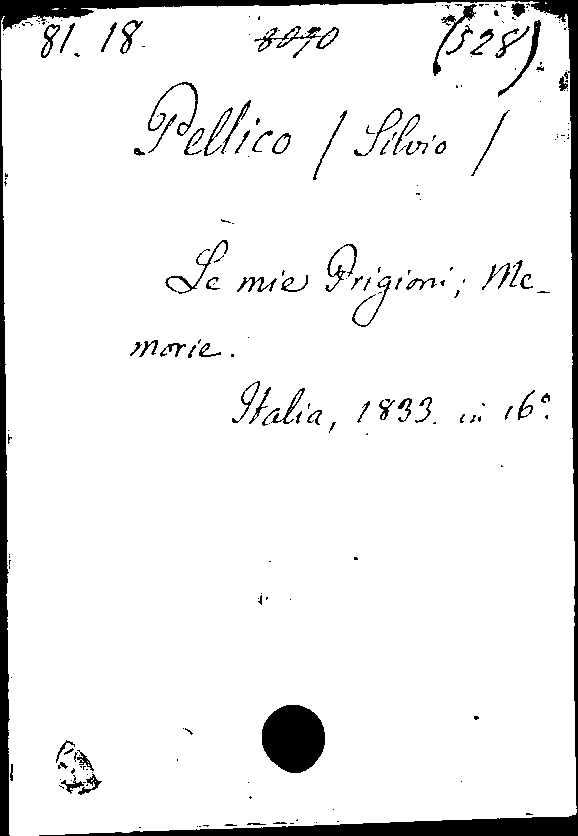 81.18. 8090 (528)
Pellico / Silvio /
Le mie Prigioni; Me-
morie.
Italia, 1833. in 16º.